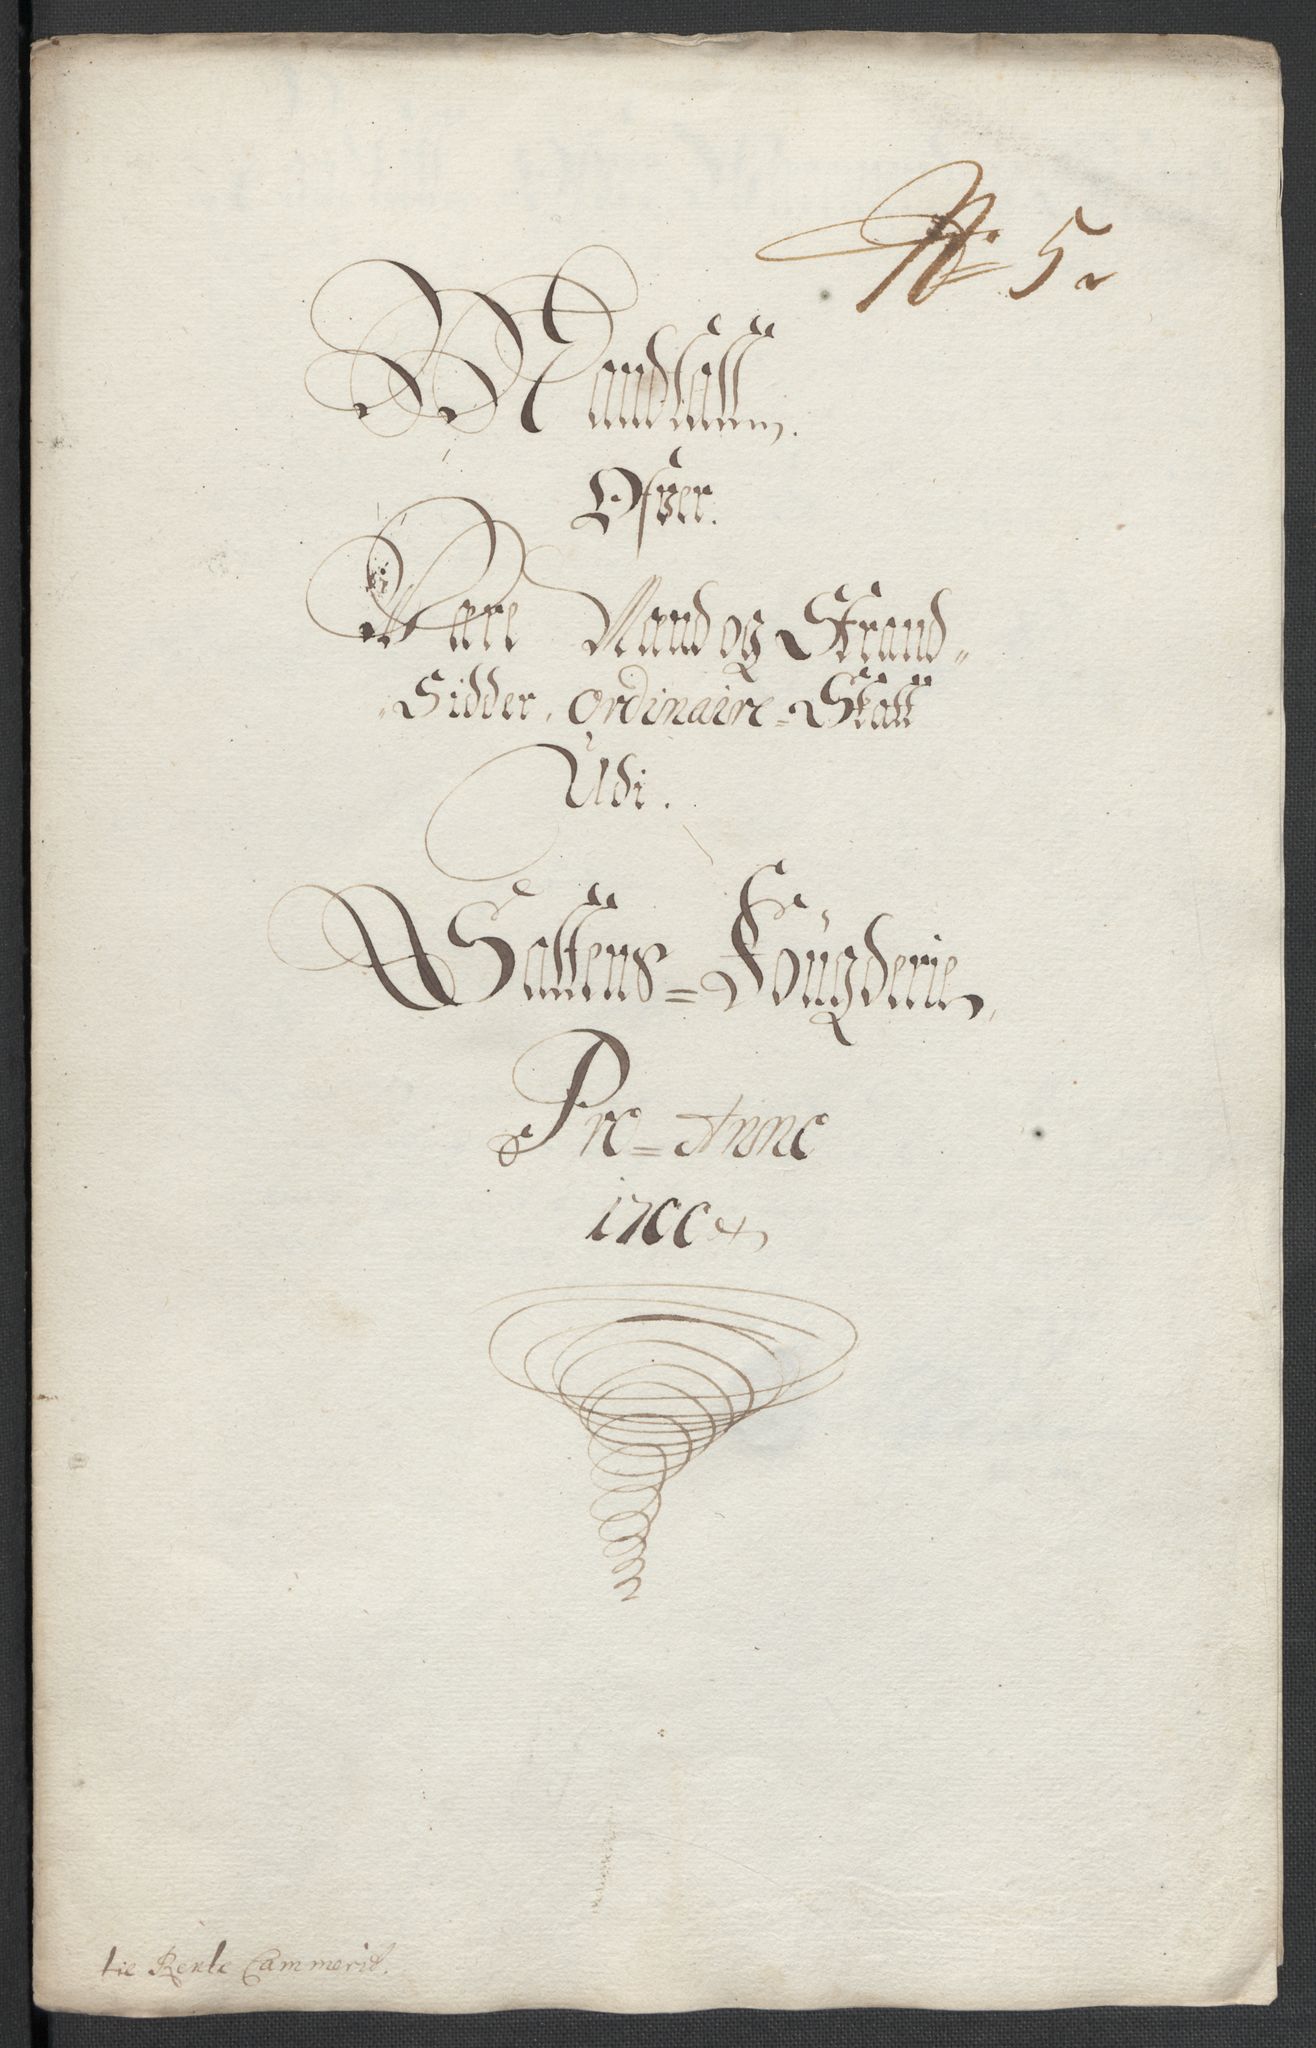 No 5.
Mandtall
Ofver
Bare Mænd og Strand-
Sidder, Ordinaire-Skatt
Udi.
Saltens-Fougderie,
Pro-Anno
1700
tie Rente Cammerit.